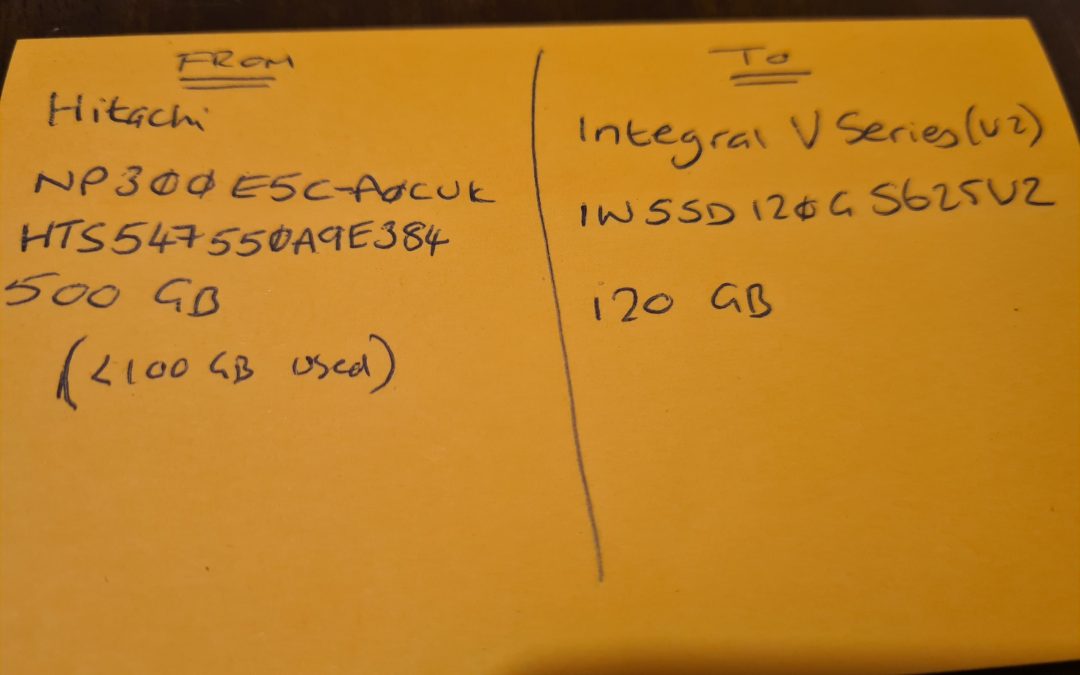 FROM
Hitachi
NP300E5C-A0CUK
HTS547550A9E384
500 GB
(<100 GB used)
TO
Integral V Series (V2)
INSSD120GS625V2
120 GB